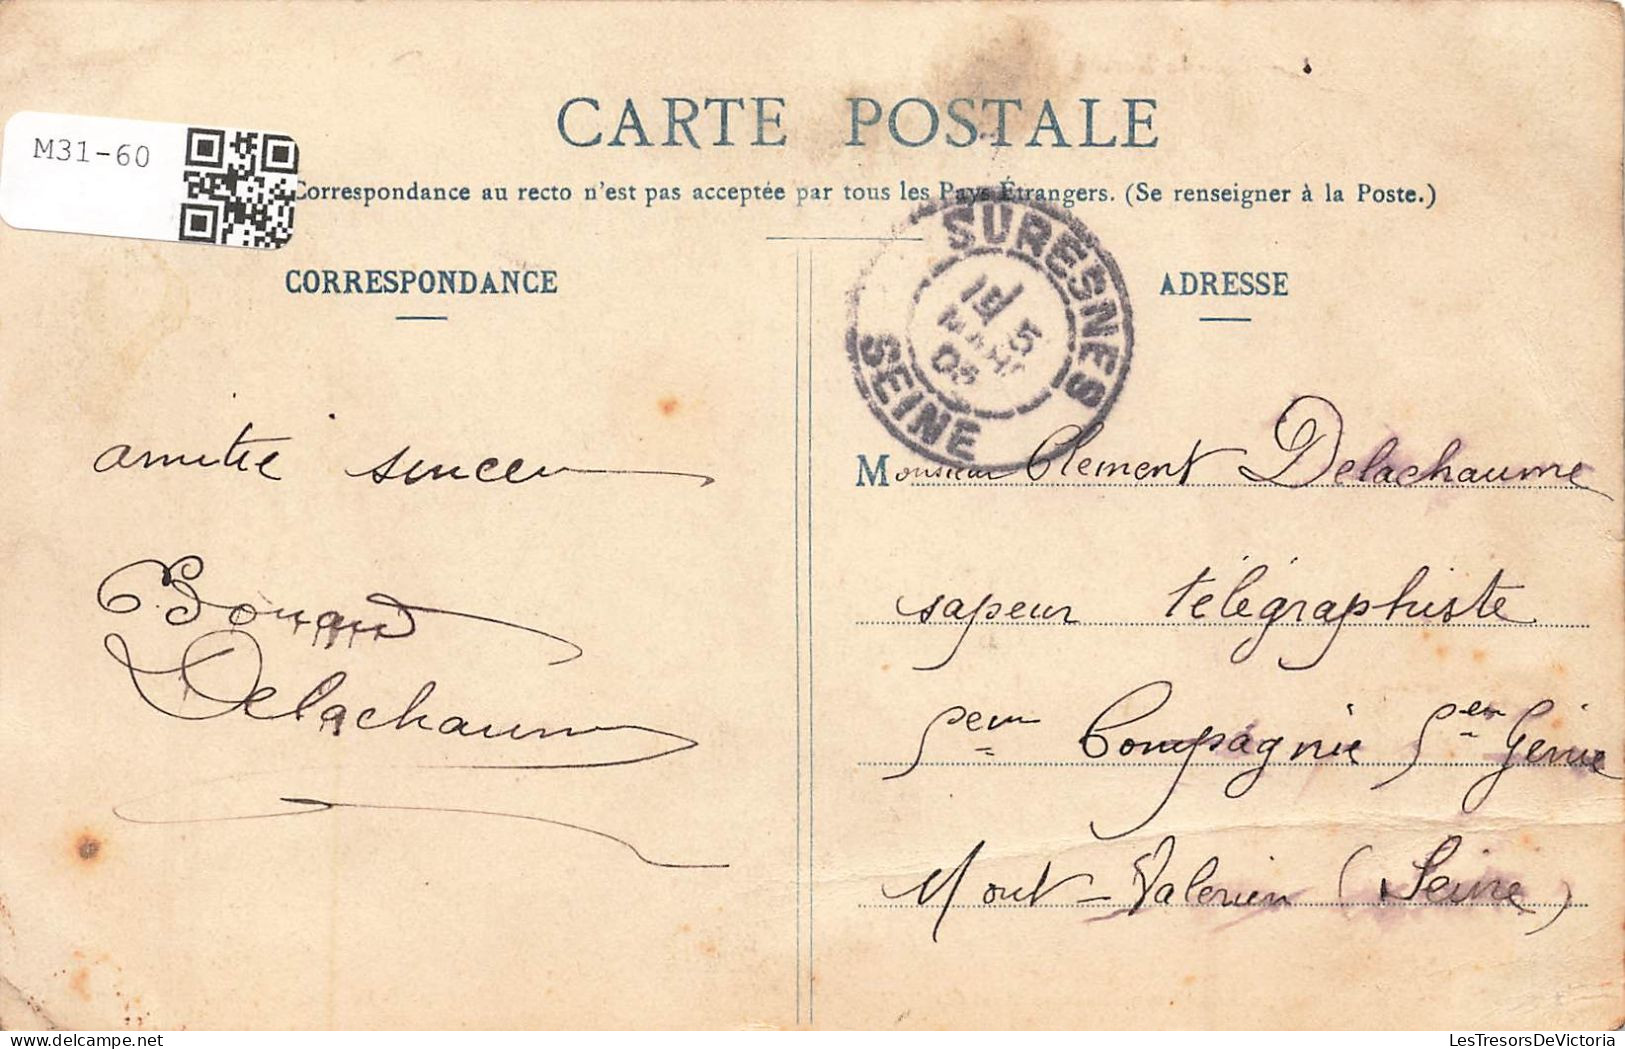 CARTE POSTALE
M31-60
Correspondance au recto n'est pas acceptée par tous les Pays Étrangers. (Se renseigner à la Poste.)
CORRESPONDANCE
ADRESSE
SURESNES
15
05
SEINE
amitié sincère
Delachaume
Monsieur Clement Delachaume
sapeur télégraphiste
5em Compagnie 5em Génie
Mont-Valerien (Seine)
LesTresorsDeVictoria